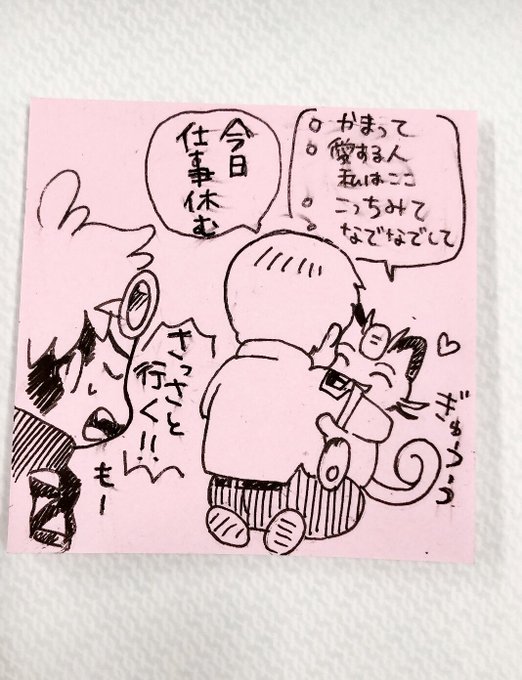 。かまって
。愛する人
私はここ
。こっちみて
。なでなでして
今日
仕事休む
さっさと
行く!!
もー
ぎゅうっ